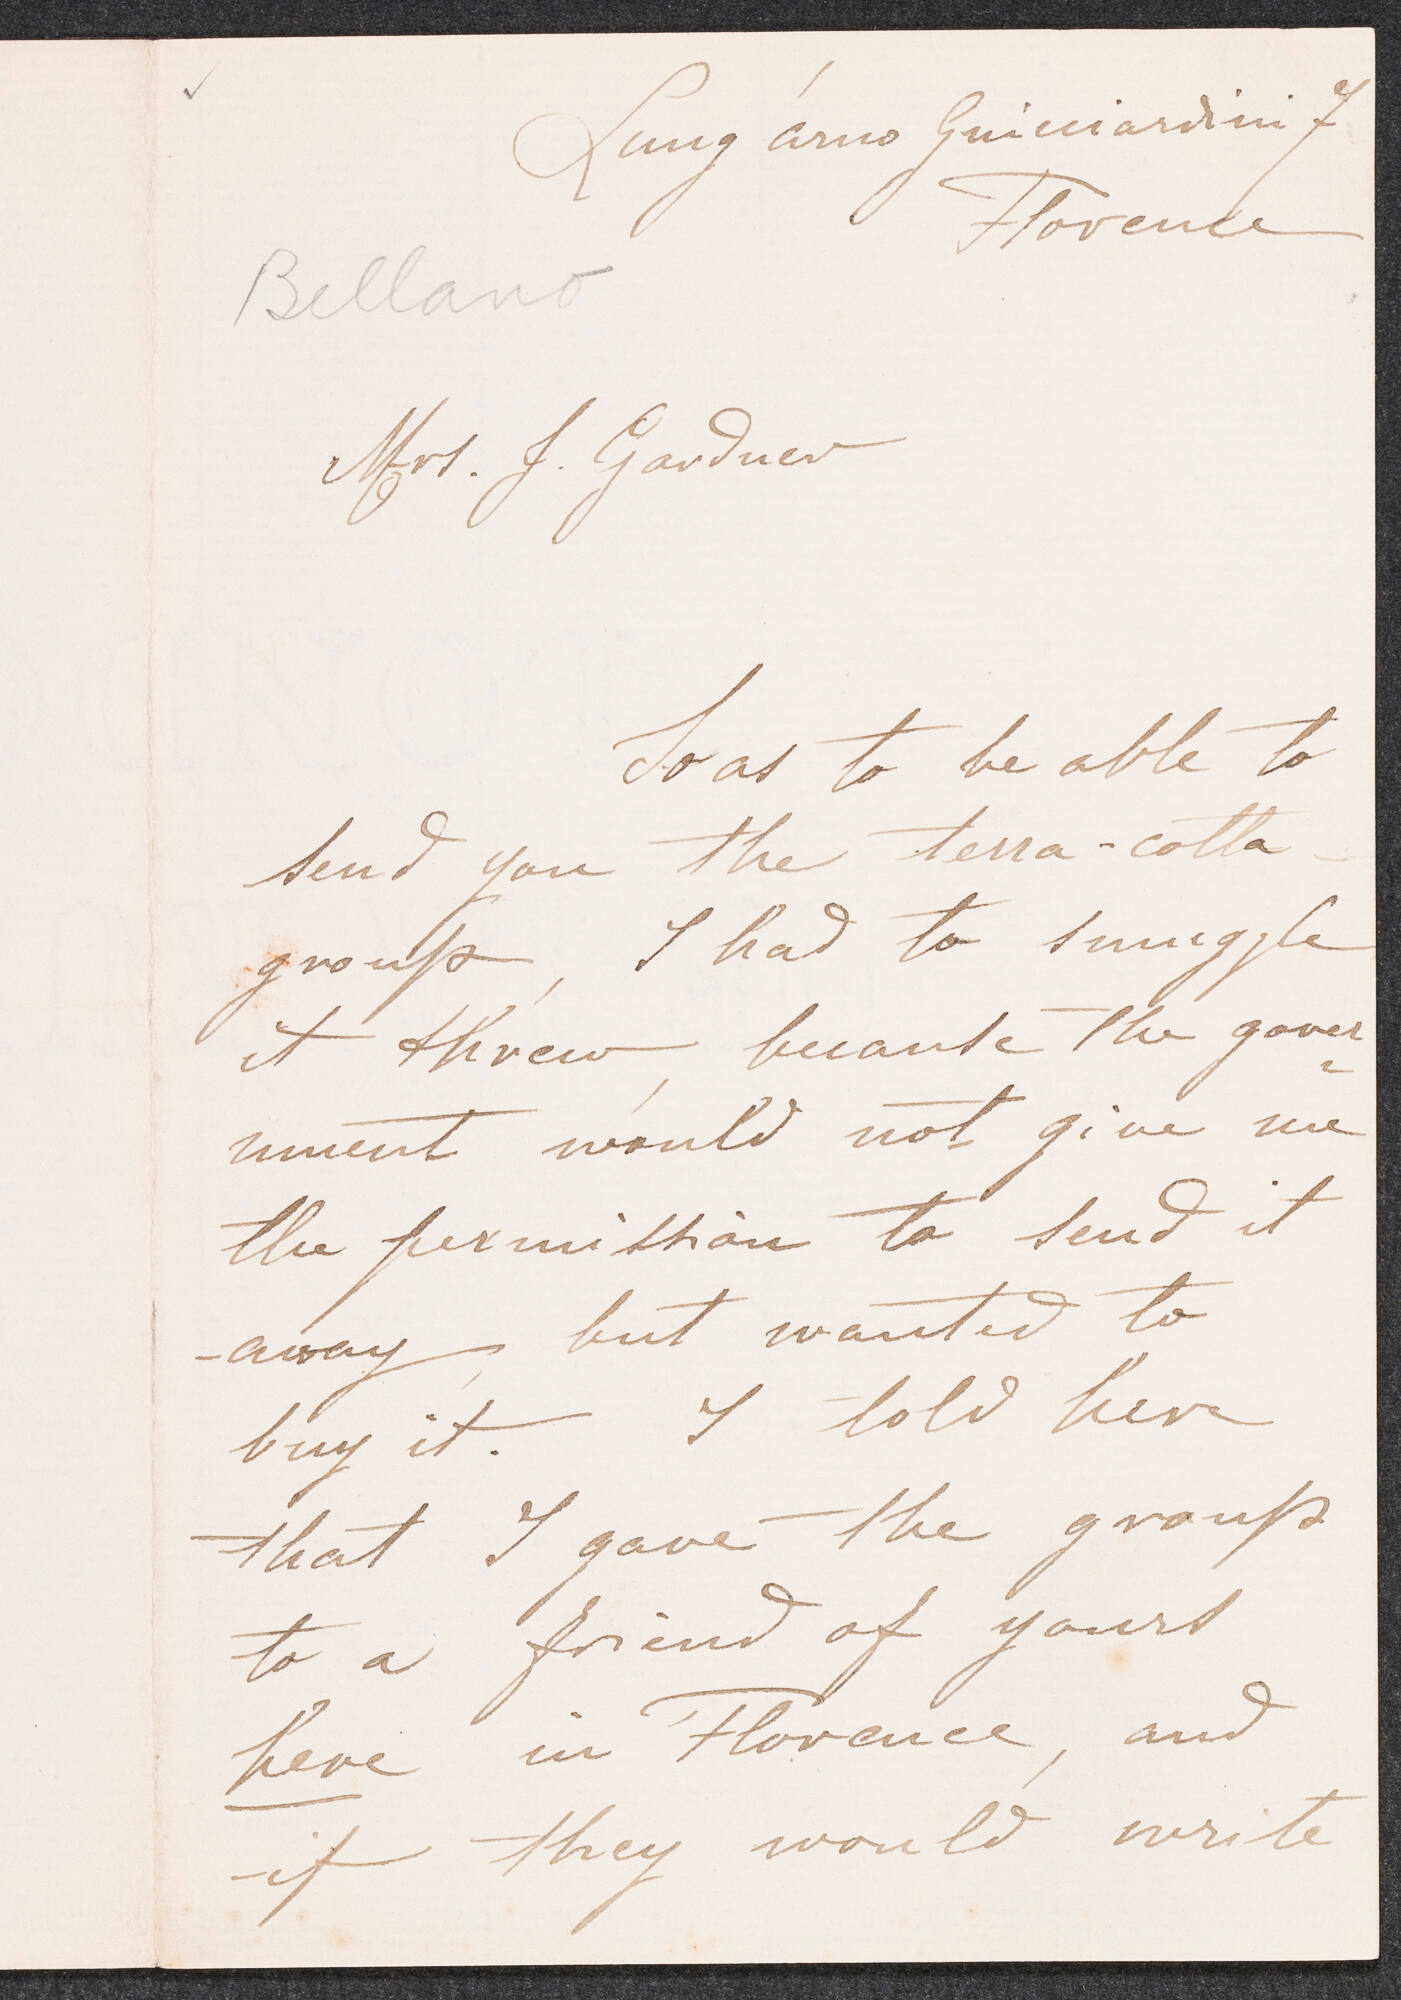 Lung'arno Guicciardini 7
Florence
Bellano
Mrs. J. Gardner
So as to be able to
send you the terra-cotta
group, I had to smuggle
it threw, because the gover
nment would not give me
the permission to send it
away, but wanted to
buy it. I told here
that I gave the group
to a friend of yours
here in Florence, and
if they would write